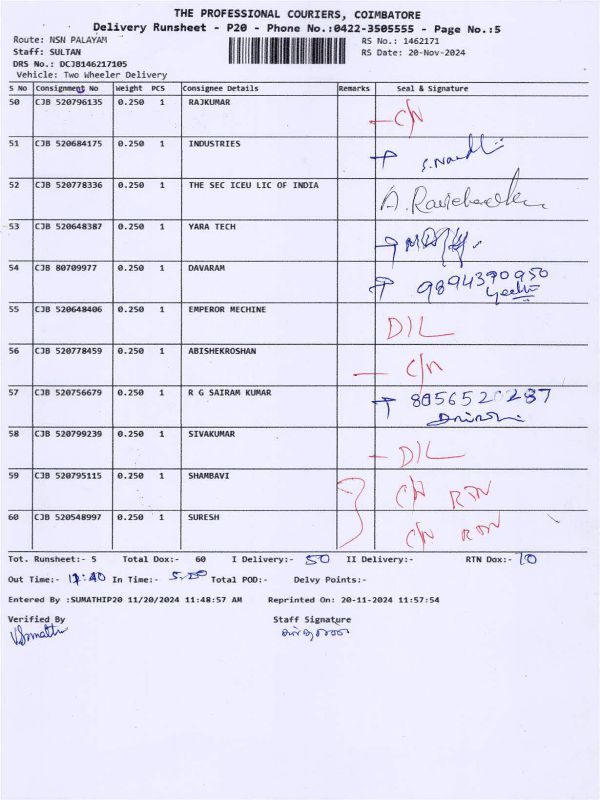 THE PROFESSIONAL COURIERS, COIMBATORE
Delivery Runsheet - P20 - Phone No.:0422-3505555 - Page No.:5
Route: NSN PALAYAM
RS No.: 1462171
Staff: SULTAN
RS Date: 20-Nov-2024
DRS No.: DCJB146217105
Vehicle: Two Wheeler Delivery
S No Consignment No Weight PCS Consignee Details Remarks Seal & Signature
50 CJB 520796135 0.250 1 RAJKUMAR C/N
51 CJB 520684175 0.250 1 INDUSTRIES
52 CJB 520778336 0.250 1 THE SEC ICEU LIC OF INDIA
53 CJB 520648387 0.250 1 YARA TECH
54 CJB 80709977 0.250 1 DAVARAM 9894370950
55 CJB 520648406 0.250 1 EMPEROR MECHINE D/L
56 CJB 520778459 0.250 1 ABISHEKROSHAN C/N
57 CJB 520756679 0.250 1 R G SAIRAM KUMAR
58 CJB 520799239 0.250 1 SIVAKUMAR D/L
59 CJB 520795115 0.250 1 SHAMBAVI C/N RTN
60 CJB 520548997 0.250 1 SURESH C/N RTN
Tot. Runsheet:- 5 Total Dox:- 60 I Delivery:- 50 II Delivery:- RTN Dox:- 10
Out Time:- In Time:- 5.00 Total POD:- Delvy Points:-
Entered By :SUMATHIP20 11/20/2024 11:48:57 AM Reprinted On: 20-11-2024 11:57:54
Verified By Staff Signature